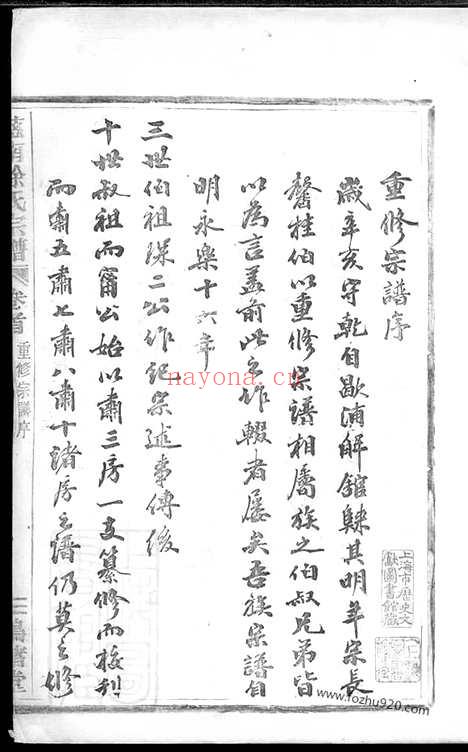 重修宗譜序
歲辛亥守乾自歇浦解館歸其明年宗長
馨桂伯以重修宗譜相屬族之伯叔兄弟皆
以為言蓋前此之作輟者屢矣吾族宗譜自
明永樂十六年
三世伯祖琛二公作記宗述事傳後
十世叔祖而甯公始以肅三房一支纂修而校刊
而肅五肅七肅八肅十諸房之譜仍莫之修
徐氏宗譜
卷首
重修宗譜序
一
堂
上海市歷史文
獻圖書館藏
nayona.cn
www.fozhu920.com